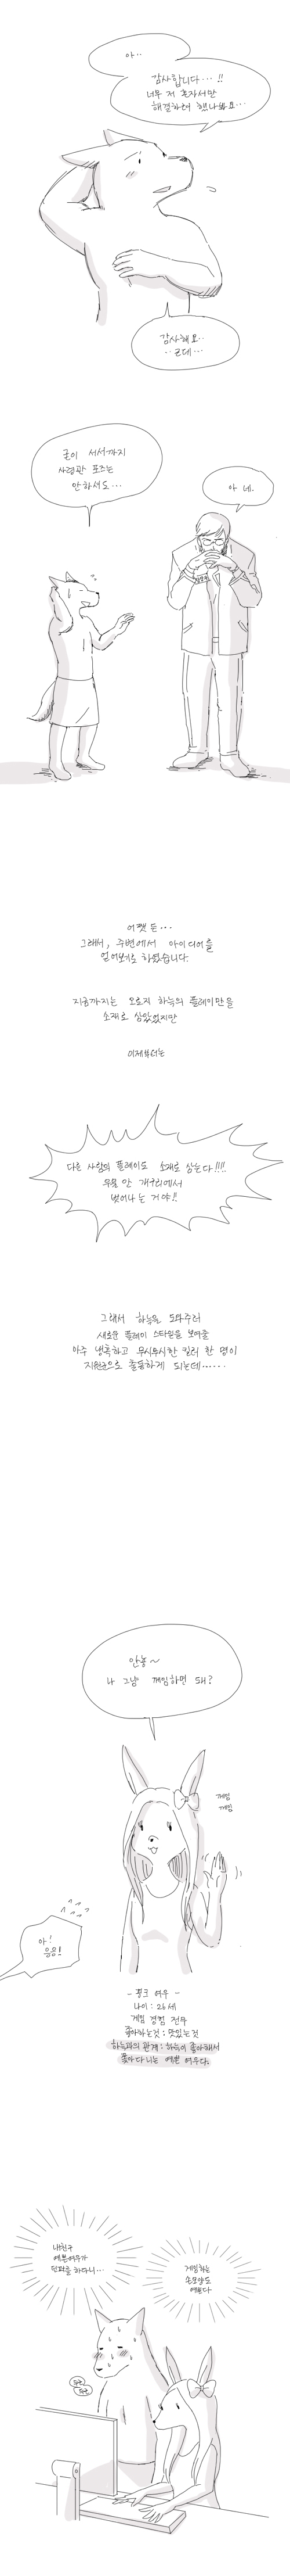 아..
감사합니다...!!
너무 저 혼자서만
해결하려 했나봐요...
감사해요..
..근데...
굳이 서서까지
사령관 포즈는
안하셔도...
아 네.
어쨋든...
그래서, 주변에서 아이디어를
얻어보기로 하였습니다.
지금까지는 오로지 하늑의 플레이만을
소재로 삼았었지만
이제부터는
다른 사람의 플레이도 소재로 삼는다!!!!
우물 안 개구리에서
벗어나는 거야!!
그래서 하늑을 도와주러
새로운 플레이 스타일을 보여줄
아주 냉혹하고 무시무시한 킬러 한 명이
지원군으로 출동하게 되는데......
안뇽~
나 그냥 께임하면 돼?
께임
께임
아!
응응!
- 핑크 여우 -
나이 : 26세
게임 경험 전무
좋아하는것 : 맛있는 것
하늑과의 관계 : 하늑이 좋아해서
쫓아다니는 예쁜 여우다.
내친구
예쁜여우가
던파를 하다니...
게임하는
손모양도
예쁘다
두근
두근